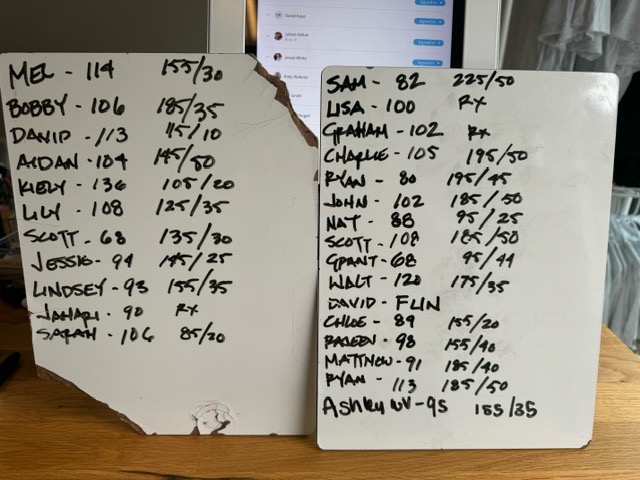 MEL - 114 155/30
BOBBY - 106 185/35
DAVID - 113 115/10
AIDAN - 104 145/50
KIELY - 136 105/20
LILY - 108 125/35
SCOTT - 68 135/30
JESSIE - 94 145/25
LINDSEY - 93 155/35
JAHARI - 90 RX
SARAH - 106 85/20
SAM - 82 225/50
LISA - 100 RX
GRAHAM - 102 RX
CHARLIE - 105 195/50
RYAN - 80 195/45
JOHN - 102 185/50
NAT - 88 95/25
SCOTT - 108 185/50
GRANT - 68 95/44
WALT - 120 175/35
DAVID - FUN
CHLOE - 89 155/20
- 98 155/40
MATTHEW - 91 185/40
RYAN - 113 185/50
Ashley W - 95 155/35